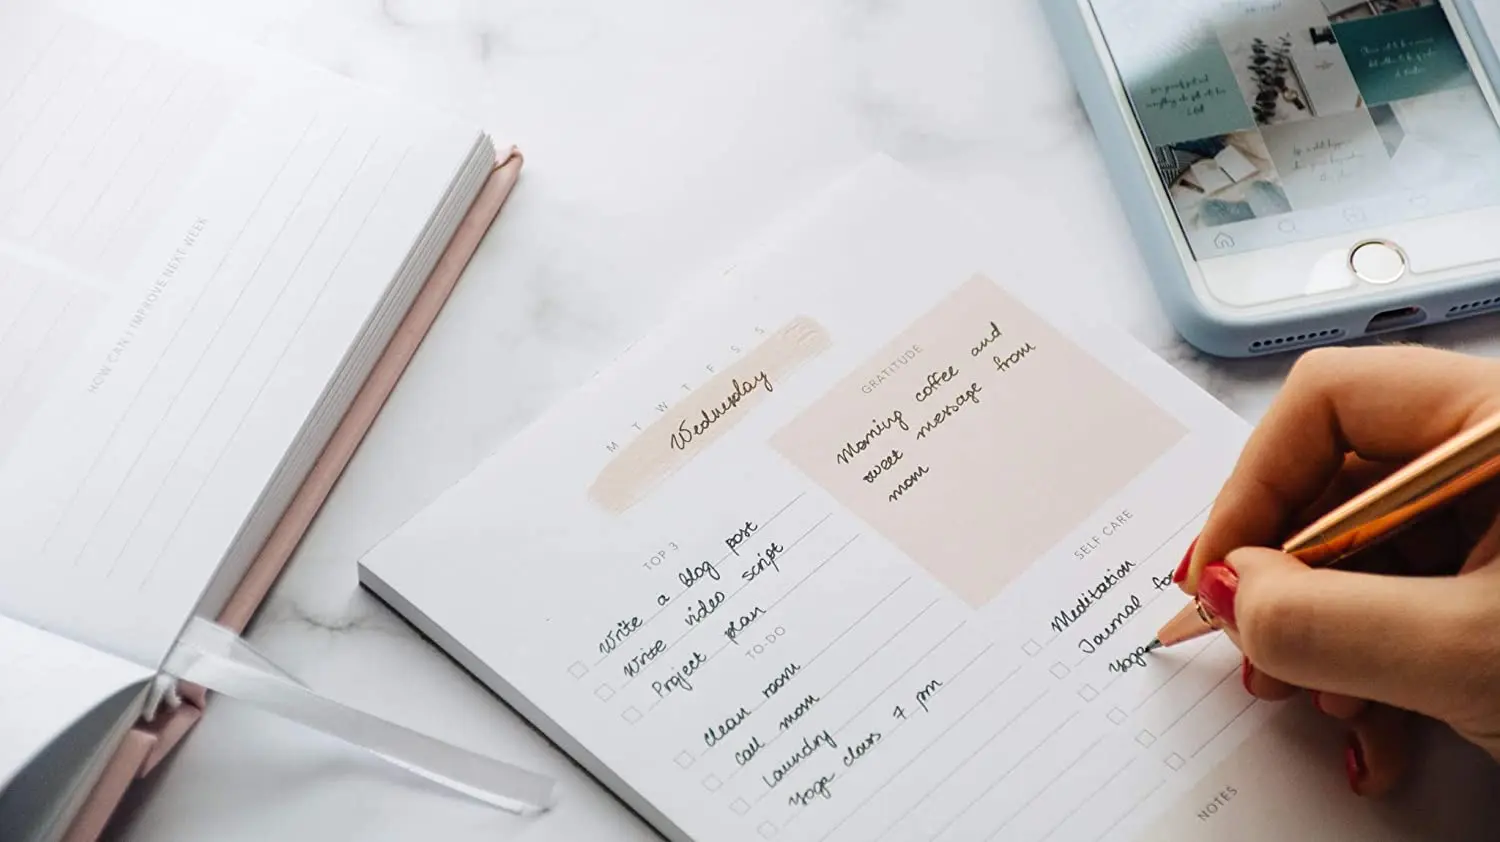 HOW CAN I IMPROVE NEXT WEEK
M T W T F S S
Wednesday
GRATITUDE
Morning coffee and
sweet message from
mom
TOP 3
Write a blog post
Write video script
Project plan
TO-DO
clean room
call mom
Laundry
yoga class 7 pm
SELF CARE
Meditation
Journal for
yoga
NOTES